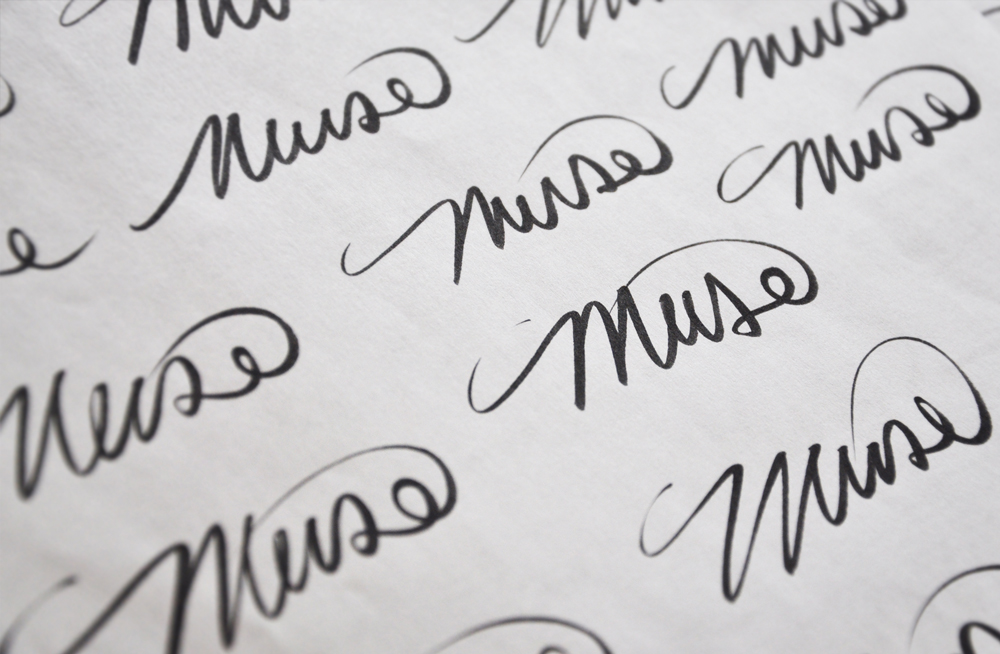 Muse
Muse
Muse
Muse
Muse
Muse
Muse
Muse